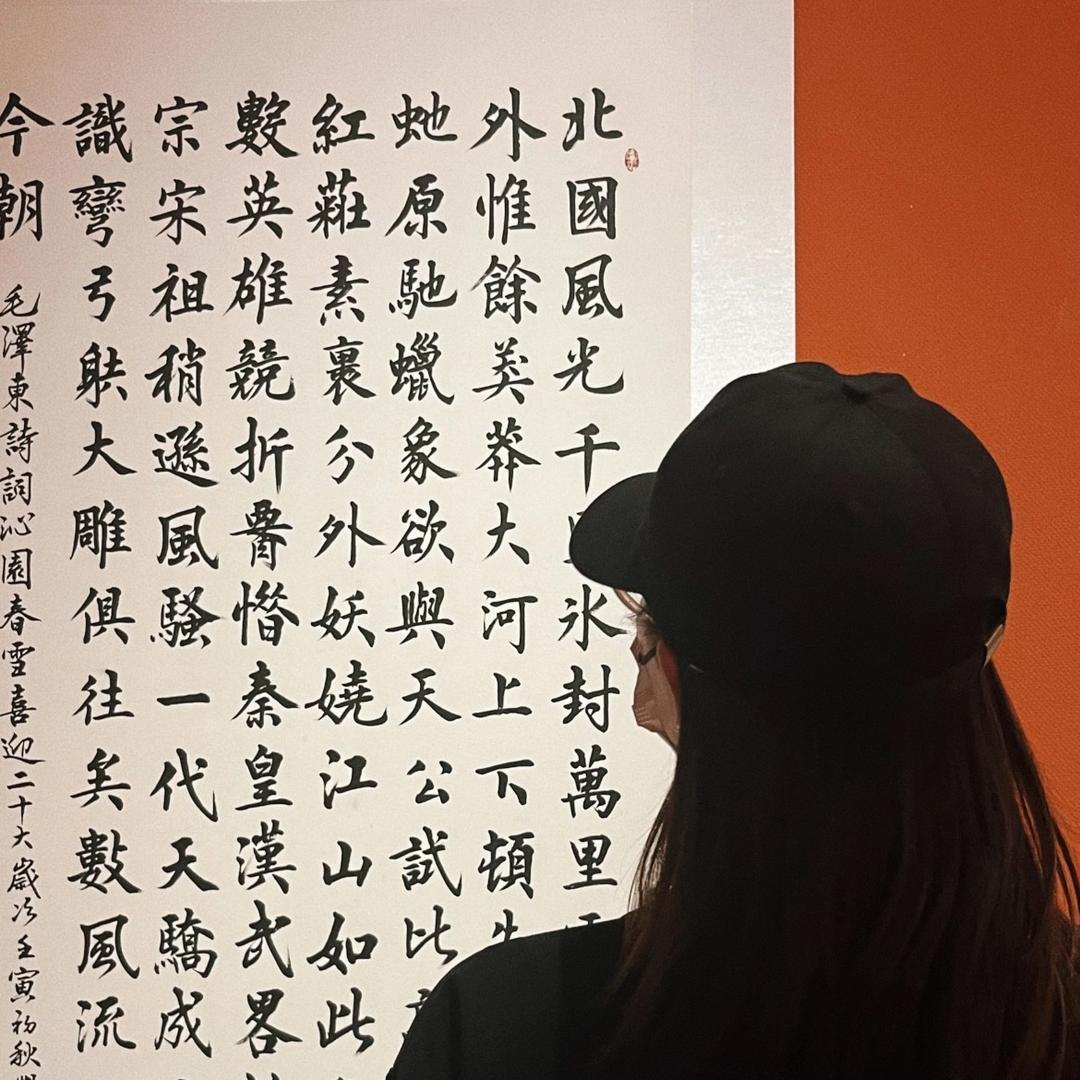 北國風光千氷封萬里
外惟餘莽莽大河上下頓
虵原馳蠟象欲與天公試比
紅蘒素裹分外妖嬈江山如此
數英雄競折腰惜秦皇漢武畧
宗宋祖稍遜風騷一代天驕成
識彎弓射大雕俱往矣數風流
今朝
毛澤東詩詞沁園春雪喜迎二十大歲次壬寅初秋